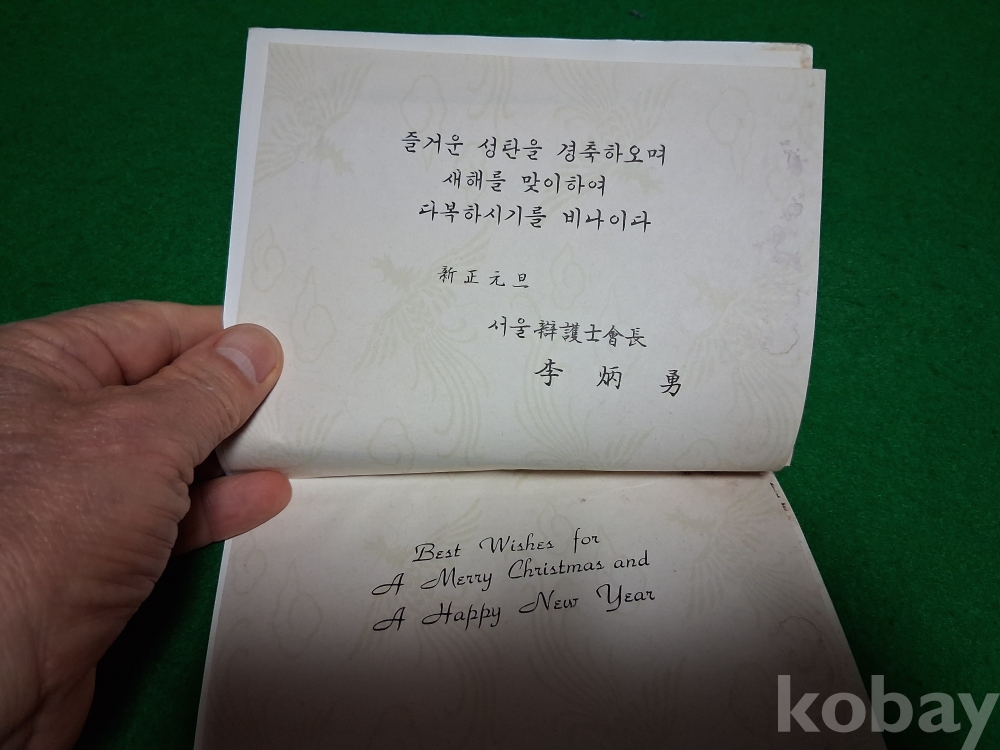 즐거운 성탄을 경축하오며
새해를 맞이하여
다복하시기를 비나이다
新正元旦
서울辯護士會長
李炳勇
Best Wishes for
A Merry Christmas and
A Happy New Year
kobay